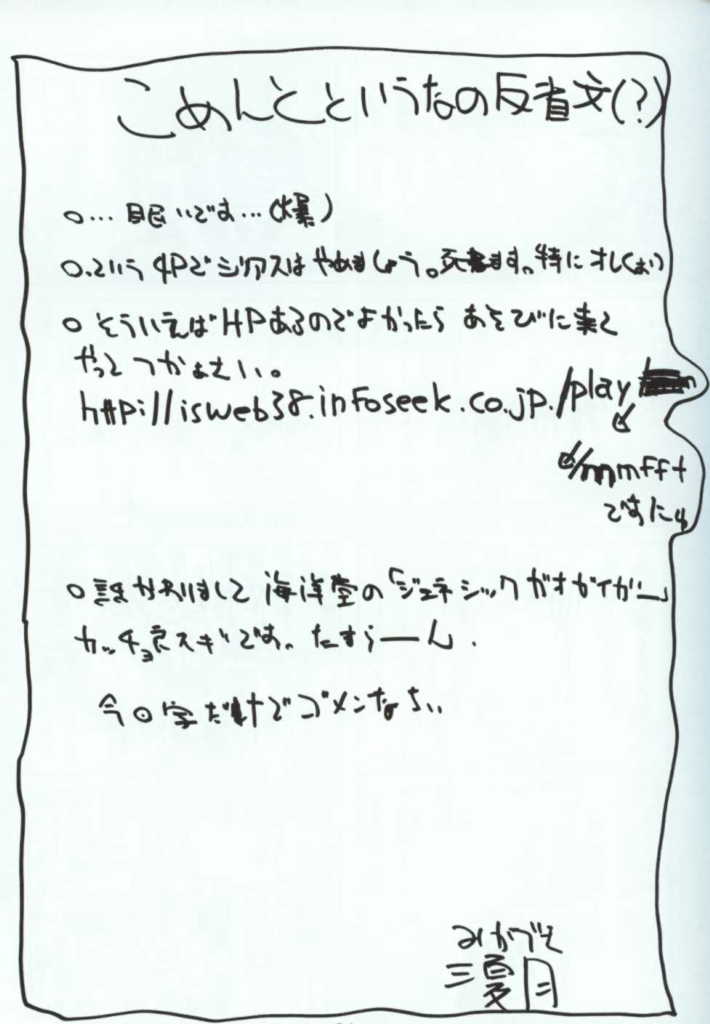 こめんとというなの反省文(?)
○…眠いです…(爆)
○という4Pでシリアスはやめましょう。死ます。特にオレ
○そういえばHPあるのでよかったらあそびに来て
やって つかぁさい。
http://isweb38.infoseek.co.jp./play
/mmfft
です
○話かわりまして 海洋堂の「ジェネシックガオガイガー」
カッチョ良スギです。たすらーん.
今回字だけでゴメンなさい
みかづき
三夏月